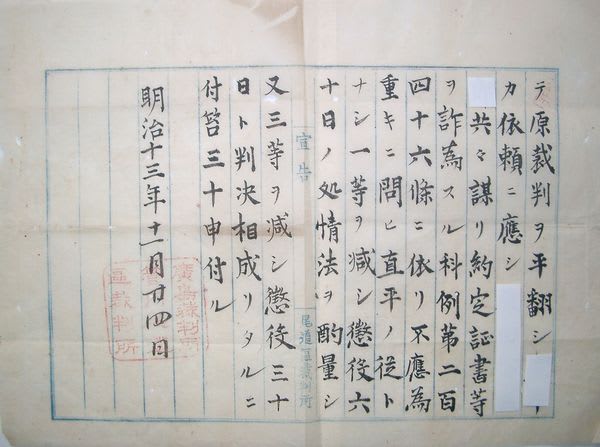 テ原裁判ヲ平翻シ
カ依頼ニ應シ
共々謀リ約定証書等
ヲ詐為スル科例第二百
四十六條ニ依リ不應為
重キニ問ヒ直平ノ従ト
ナシ一等ヲ減シ懲役六
十日ノ処情法ヲ酌量シ
宣告
尾道區裁判所
又三等ヲ減シ懲役三十
日ト判决相成リタルニ
付笞三十申付ル
明治十三年十一月廿四日
區裁判所